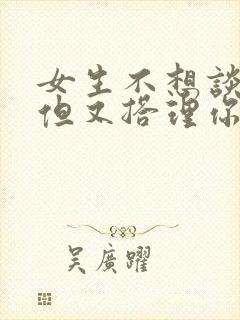 女生不想談
但又搭理你
吴廣躍